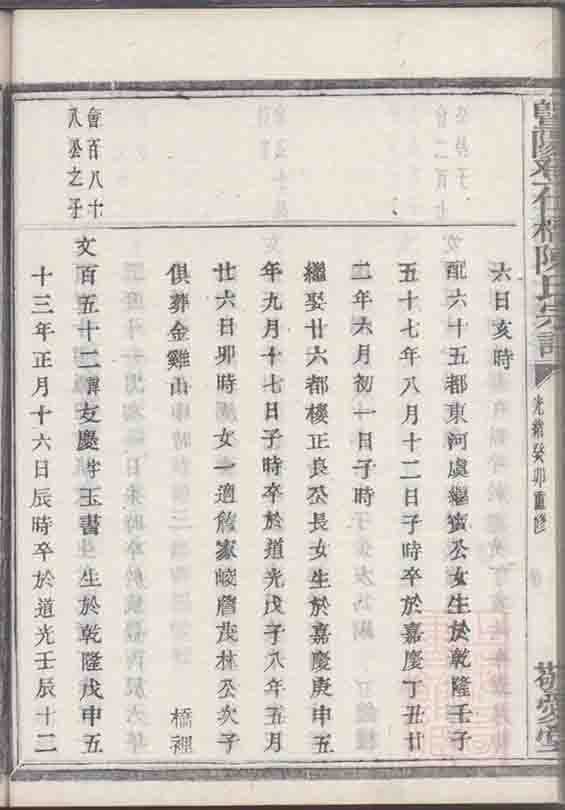 暨陽石橋陳氏宗譜
光緒癸卯重修
敬愛堂
六日亥時
配六十五都東河虞繼賓公女生於乾隆壬子
五十七年八月十二日子時卒於嘉慶丁丑廿
二年六月初一日子時
繼娶廿六都樓正良公長女生於嘉慶庚申五
年九月十七日子時卒於道光戊子八年五月
廿六日卯時 女一適家峻詹茂林公次子
俱葬金雞山 橋裡
會百八十
八公之子
文百五十二諱友慶字玉書 生於乾隆戊申五
十三年正月十六日辰時卒於道光壬辰十二